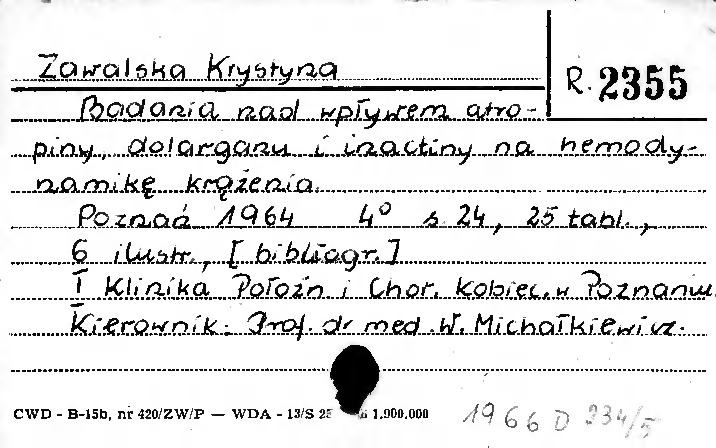 Zawalska Krystyna
R. 2355
Badania nad wpływem atro-
piny, dolarganu i inactiny na hemody-
namikę krążenia.
Poznań 1964 4° s. 24, 25 tabl.,
6 ilustr., [bibliogr.]
I Klinika Położn i Chor. Kobiec. w Poznaniu
Kierownik: Prof. dr med. W. Michałkiewicz.
CWD - B-15b, nr 420/ZW/P — WDA - 13/S 1.000.000
1966 D 234/5